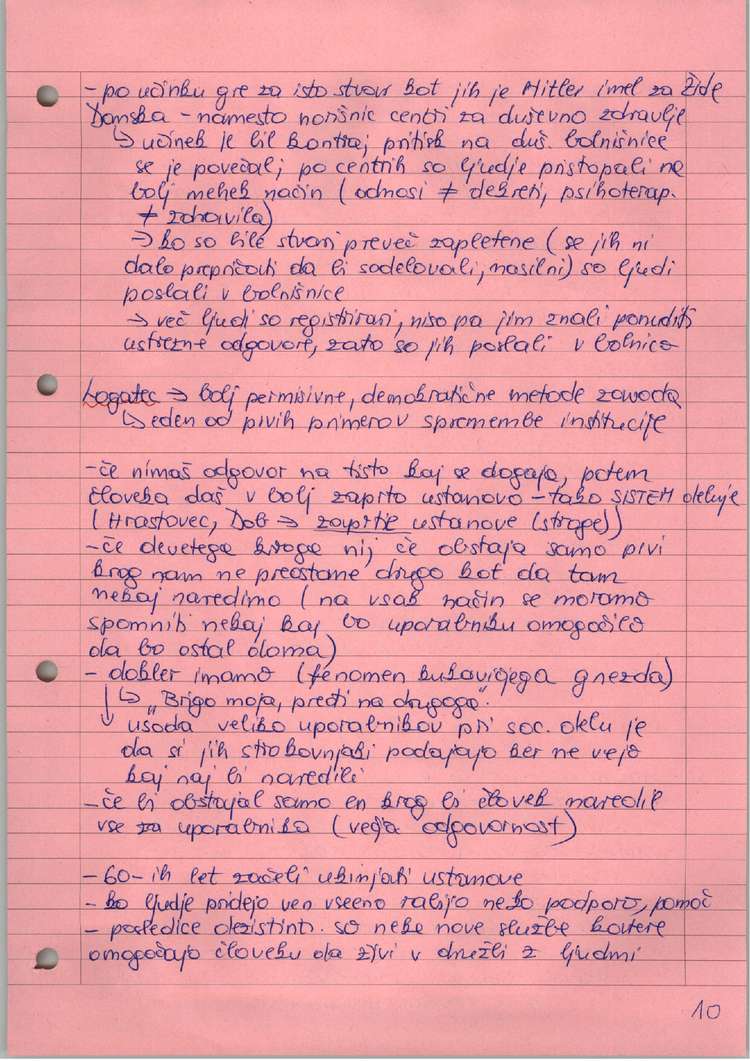 - po učinku gre za isto stvar kot jih je Hitler imel za Žide
Danska - namesto norišnic centri za duševno zdravlje
↳ učinek je bil kontraj pritisk na duš. bolnišnice
se je povečal; po centrih so ljudje pristopali na
bolj mehek način (odnosi ≠ dekreti, psihoterap.
≠ zdravila)
→ ko so bile stvari preveč zapletene (se jih ni
dalo prepričati da bi sodelovali, nasilni) so ljudi
poslali v bolnišnice
→ več ljudi so registrirani, niso pa jim znali ponuditi
ustrezne odgovore, zato so jih poslali v bolnico
Logatec → bolj permisivne, demokratične metode zavoda
↳ eden od prvih primerov spremembe institucije
- če nimaš odgovor na tisto kaj se dogaja, potem
človeka daš v bolj zaprto ustanovo - tako SISTEM deluje
(Hrastovec, Dob → zaprte ustanove (stroge))
- če devetega kroga nij če obstaja samo prvi
krog nam ne preostane drugo kot da tam
nekaj naredimo (na vsak način se moramo
spomniti nekaj kaj bo uporabniku omogočilo
da bo ostal doma)
- dokler imamo (fenomen kukavičjega gnezda)
↳ „Briga moja, predi na drugoga".
↓ usoda veliko uporabnikov pri soc. delu je
da si jih strokovnjaki podajajo ker ne vejo
kaj naj bi naredili
- če bi obstajal samo en krog bi človek naredil
vse za uporabnika (večja odgovornost)
- 60-ih let začeli ukinjati ustanove
- ko ljudje pridejo ven vseeno rabijo neko podporo, pomoč
- posledice dezistint. so neke nove službe katere
omogočajo človeku da živi v družbi z ljudmi
10